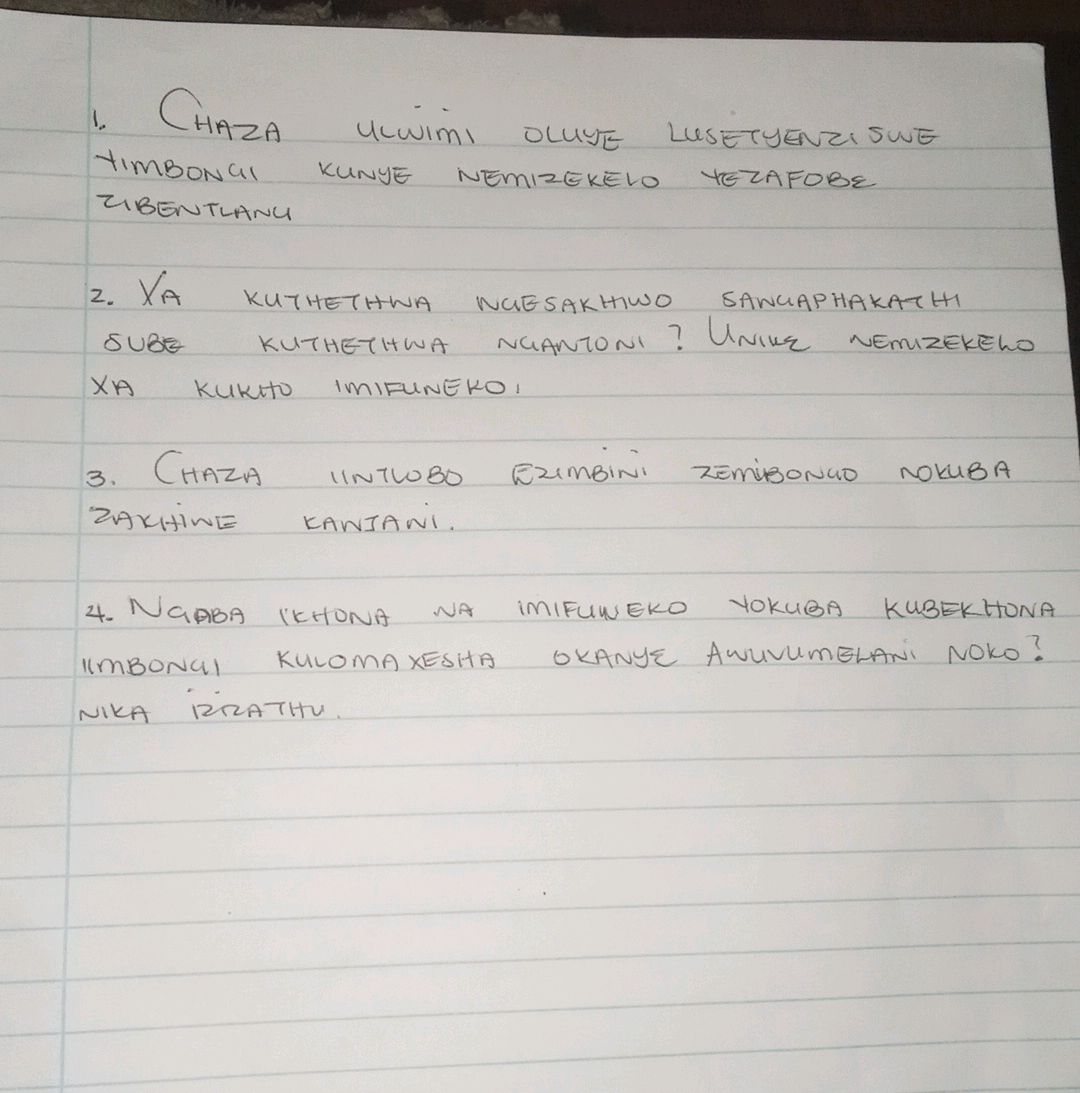 1. CHAZA ULWIMI OLUYE LUSETYENZISWE
YIMBONGI KUNYE NEMIZEKELO YEZAFOBE
ZIBENTLANU
2. XA KUTHETHWA NGESAKHIWO SANGAPHAKATHI
SUBE KUTHETHWA NGANTONI? UNIKE NEMIZEKELO
XA KUKHO IMIFUNEKO.
3. CHAZA IINTLOBO EZIMBINI ZEMIBONGO NOKUBA
ZAKHIWE KANJANI.
4. NGABA IKHONA NA IMIFUNEKO YOKUBA KUBEKHONA
IIMBONGI KULOMAXESHA OKANYE AWUVUMELANI NOKO?
NIKA IZIZATHU.